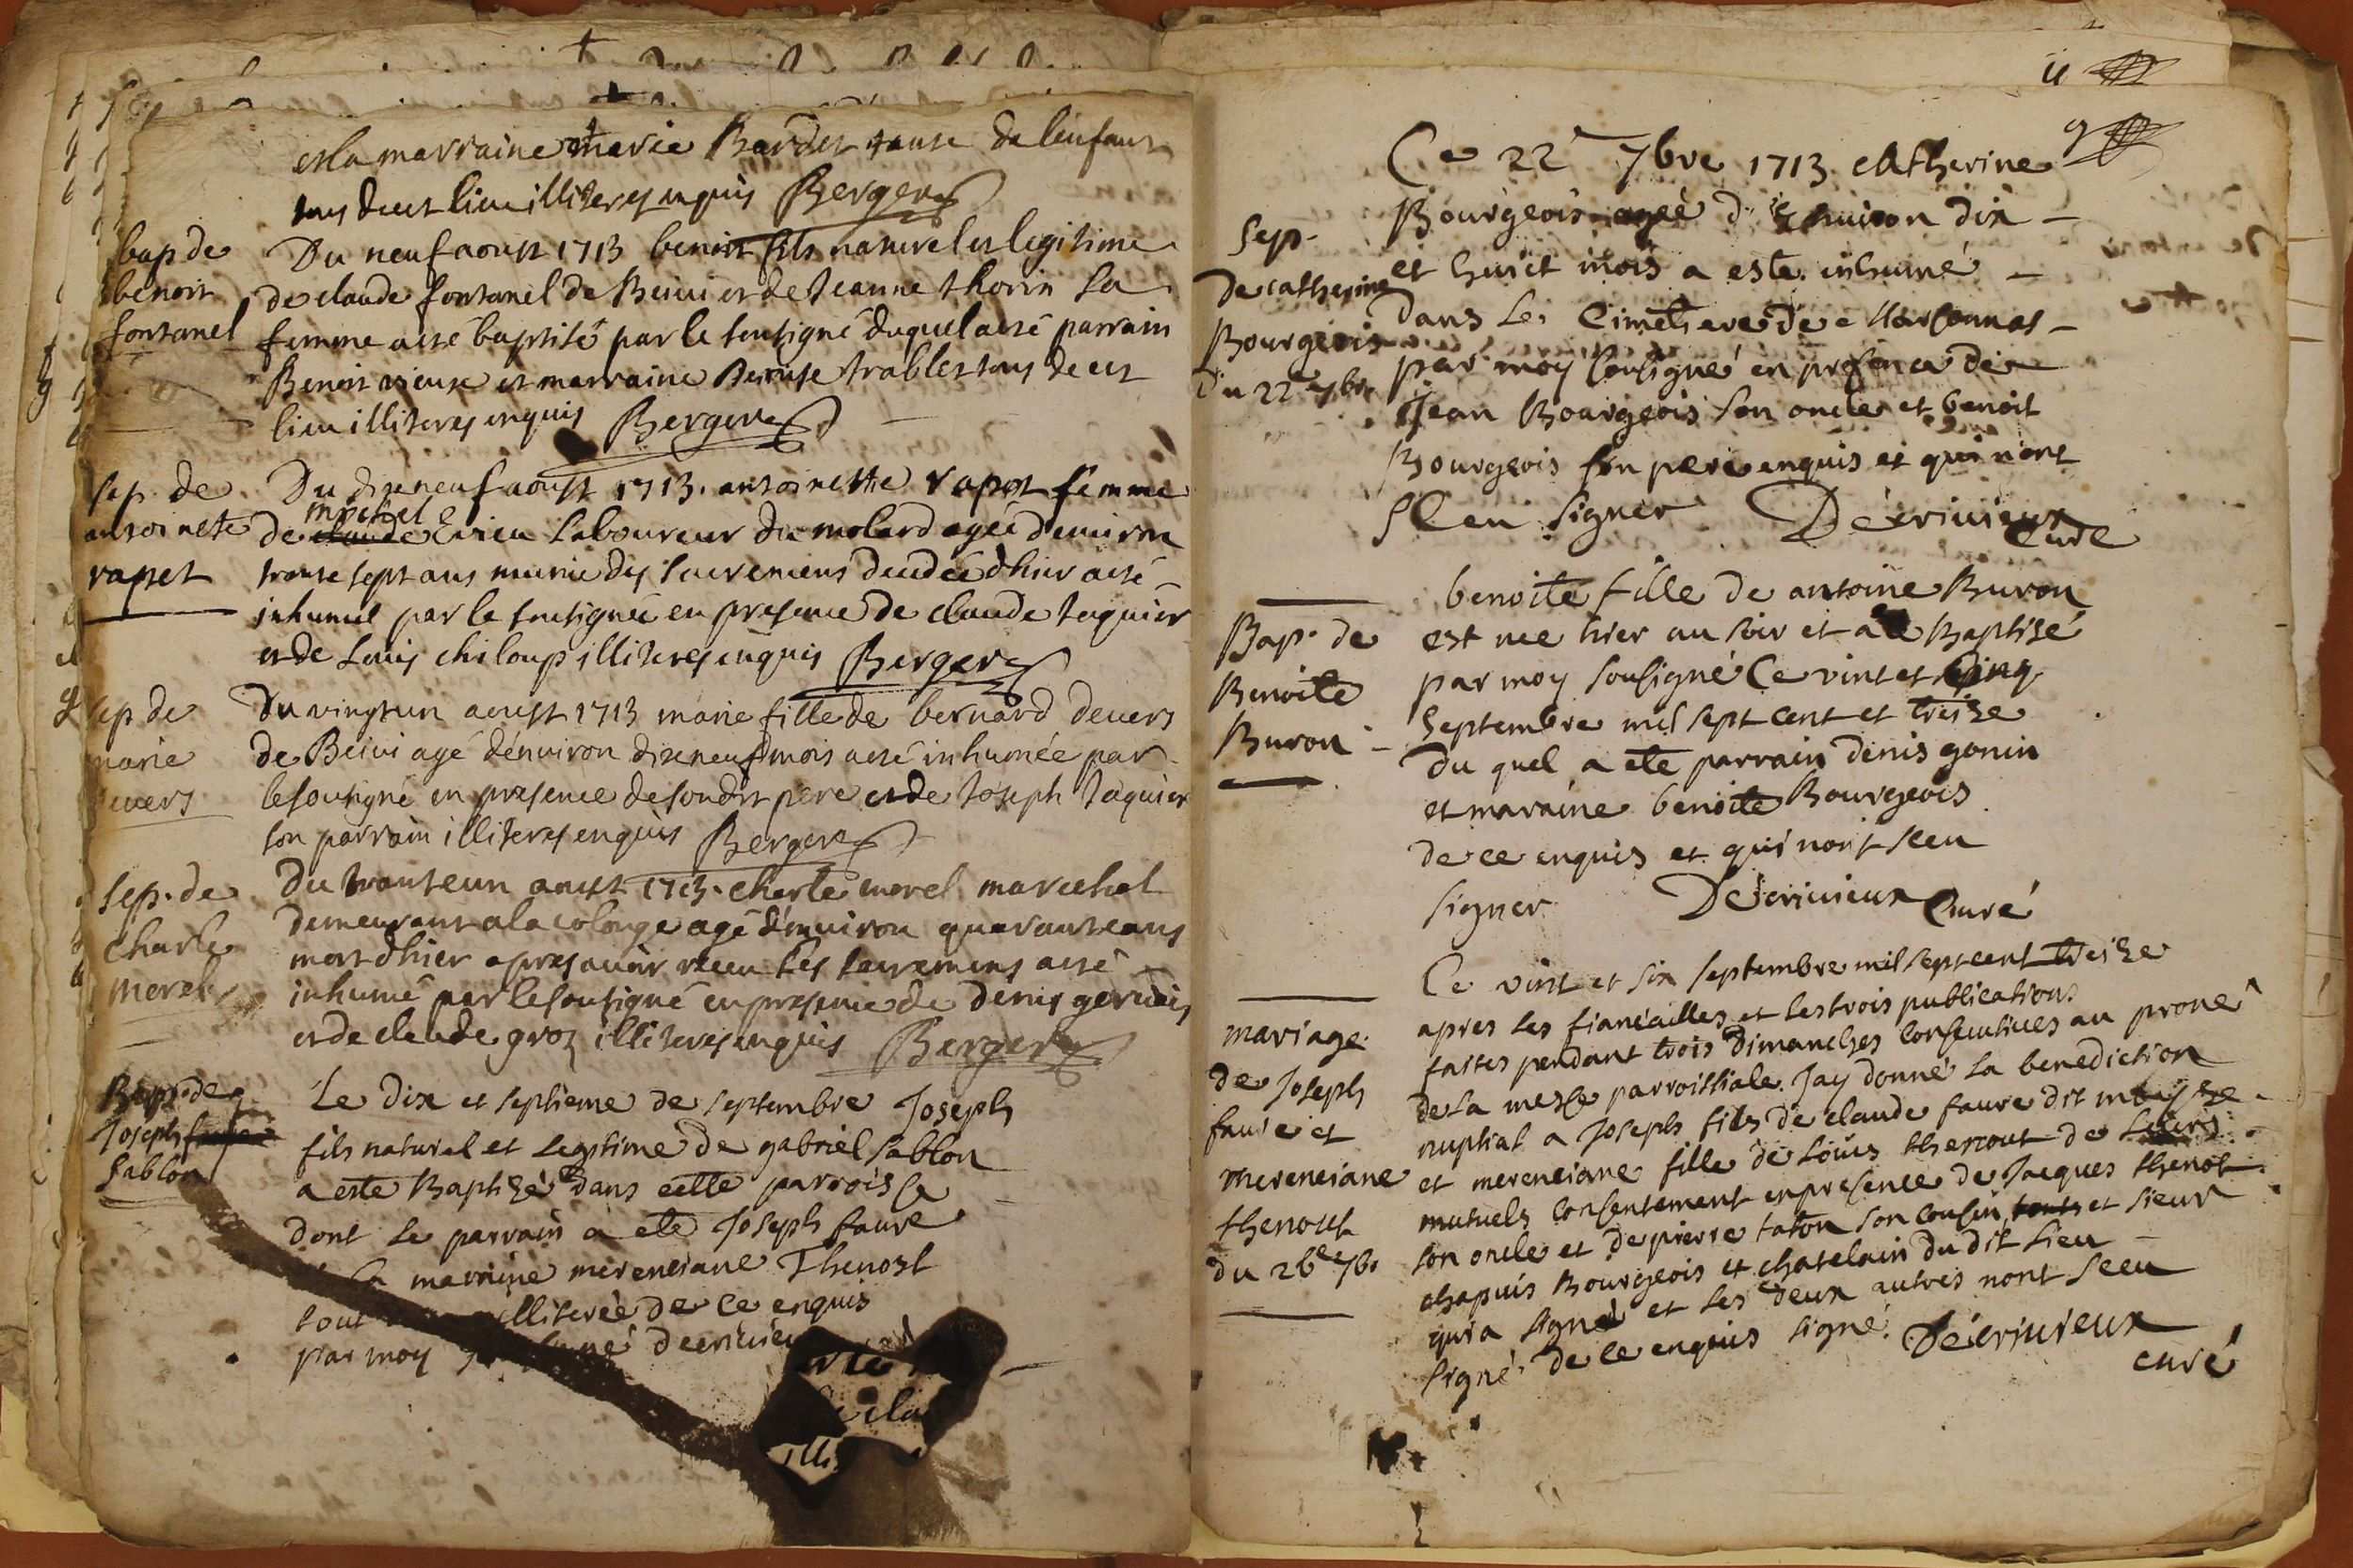 et la marraine marie Bardet tante de lenfant
tous de cet lieu illiteres enquis Berger
bap de
benoit
fontanel
Du neuf aoust 1713 benoit fils naturel et legitime
de claude fontanel de Beiui et de Jeanne thorin sa
femme a esté baptisé par le soussigné duquel a esté parrain
Benoit vieux et marraine trables tous de cet
lieu illiteres enquis Berger
sep. de
antoinete
rapet
Du dixeneuf aoust 1713. antoinette rapet femme
michel
de claude laboureur du molard agée denuiron
trante sept ans munie des sacremens decedée dhier a esté
inhumée par le soussigné en presence de claude Jaquier
et de Louis chiloup illiteres enquis Berger
sep de
marie
deuers
Du vingtun aoust 1713 marie fille de bernard deuers
de Beiui agé dénuiron dixeneuf mois a esté inhumée par
le soussigné en presence de sondit pere et de Joseph Jaquier
son parrain illiteres enquis Berger
sep. de
Charle
morel
Du tranteun aoust 1713. charle morel marechal
demeurant a la colonge agé dénuiron quarante ans
mort dhier apres auoir receu les sacremens a esté
inhumé par le soussigné en presence de denis geruais
et de claude groz illiteres enquis Berger
Bap. de
Joseph faure
Sablon
Le dix et septieme de septembre Joseph
fils naturel et legitime de gabriel sablon
a este Baptizé dans cette parroisse
dont le parrain a ete Joseph faure
la marraine merenciane Thenost
tout illiterée de ce enquis
par moy
cla
illi
11
9
Sep.
De catherine
Bourgeois
Du 22e 7bre
Ce 22e 7bre 1713 catherine
Bourgeois agée d'enuiron dix
et huict mois a esté inhumé
dans le Cimetiere de Marsonnas
par moy sousigné en presence de
Jean Bourgeois son oncle et benoit
Bourgeois son pere enquis et qui n'ont
sceu signer Décriuieux
Curé
Bap. de
Benoite
Buron
benoite fille de antoine Buron
est née hier au soir et a eté Baptizé
par moy sousigné Ce vint et cinq
Septembre mil sept cent et treize
du quel a ete parrain denis gonin
et maraine benoite Bourgeois
de ce enquis et qui n'ont sceu
signer Décriuieux Curé
mariage
de Joseph
faure et
merenciane
thenoust
du 26e 7bre
Ce vint et six septembre mil sept cent treize
apres les fiancailles et les trois publications
faites pendant trois dimanches consecutiues au prone
de la messe parroissiale Jay donné la benediction
nuptial a Joseph fils de claude faure dit
et merenciane fille de Louis thenout de leurs
mutuels consentement en presence de Jacques thenot
son oncle et de pierre taton son cousin et sieur
chapuis Bourgeois et chatelain du dit lieu
qui a signé et les deux autres n'ont sceu
signé de ce enquis signé. Décriuieux
curé